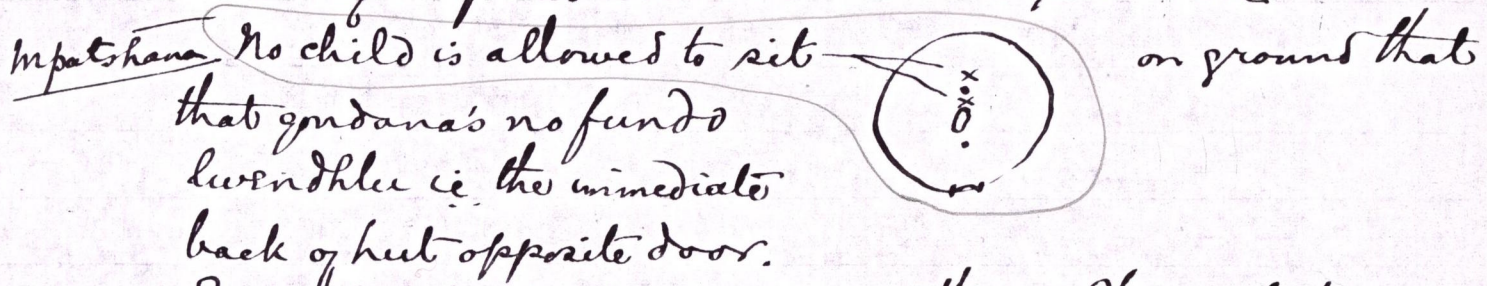 Mpatshana No child is allowed to sit on ground that
that qondana's no fundo
lwendhlu ie. the immediate
back of hut opposite door.